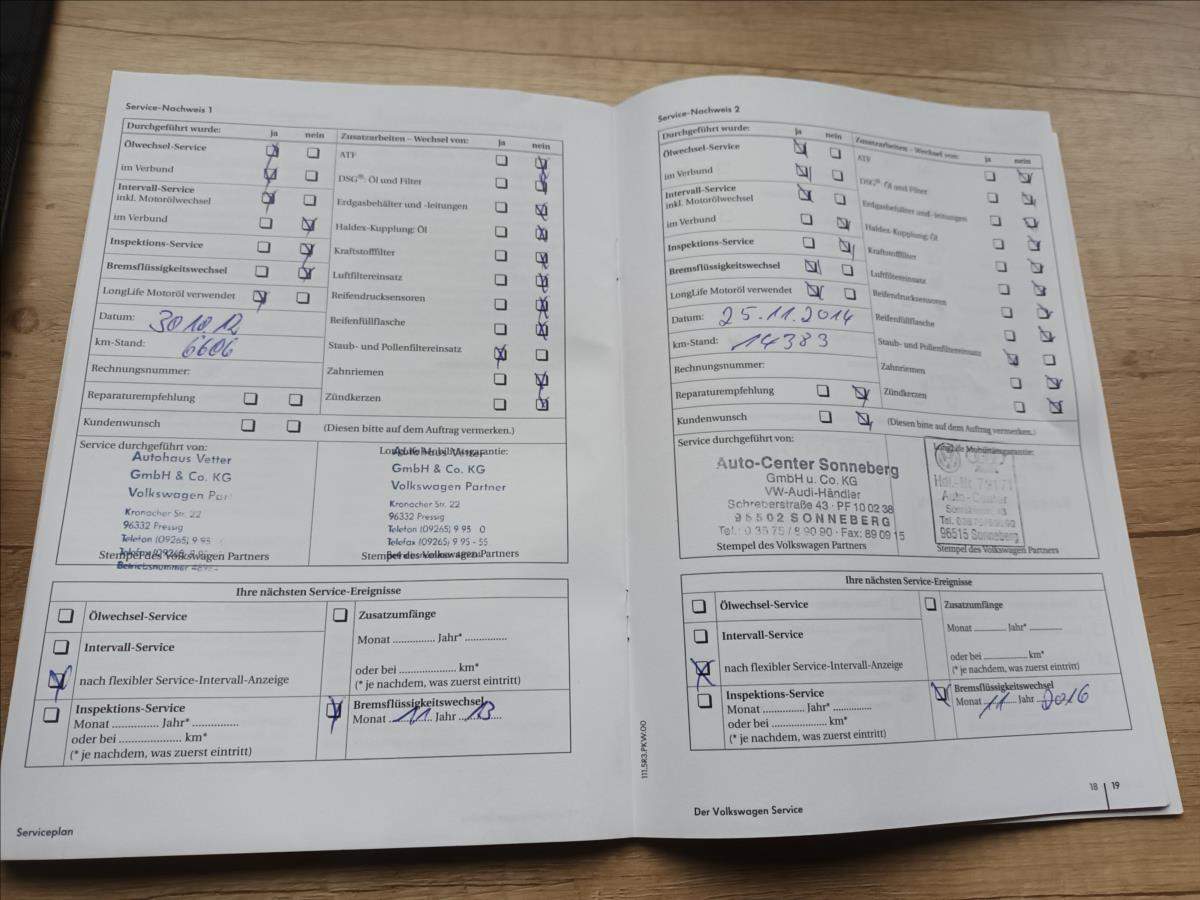 Service-Nachweis 1
Durchgeführt wurde: ja nein
Ölwechsel-Service
im Verbund
Intervall-Service
inkl. Motorölwechsel
im Verbund
Inspektions-Service
Bremsflüssigkeitswechsel
LongLife Motoröl verwendet
Datum: 30 10 12
km-Stand: 6606
Rechnungsnummer:
Reparaturempfehlung
Kundenwunsch
Zusatzarbeiten – Wechsel von: ja nein
ATF
DSG®: Öl und Filter
Erdgasbehälter und -leitungen
Haldex-Kupplung: Öl
Kraftstofffilter
Luftfiltereinsatz
Reifendrucksensoren
Reifenfüllflasche
Staub- und Pollenfiltereinsatz
Zahnriemen
Zündkerzen
(Diesen bitte auf dem Auftrag vermerken.)
Service durchgeführt von:
Autohaus Vetter
GmbH & Co. KG
Volkswagen Par
Kronacher Str. 22
96332 Pressig
Telefon (09265) 9 95
Stempel des Volkswagen Partners
Betriebsnummer
GmbH & Co. KG
Volkswagen Partner
Kronacher Str. 22
96332 Pressig
Telefon (09265) 9 95 0
Telefax (09265) 9 95 - 55
Stempel des Volkswagen Partners
Ihre nächsten Service-Ereignisse
Ölwechsel-Service
Intervall-Service
nach flexibler Service-Intervall-Anzeige
Inspektions-Service
Monat ............... Jahr* ...............
oder bei .................... km*
(* je nachdem, was zuerst eintritt)
Zusatzumfänge
Monat .............. Jahr* ..............
oder bei .................... km*
(* je nachdem, was zuerst eintritt)
Bremsflüssigkeitswechsel
Monat 11 Jahr 13
Serviceplan
Service-Nachweis 2
Durchgeführt wurde: ja nein
Ölwechsel-Service
im Verbund
Intervall-Service
inkl. Motorölwechsel
im Verbund
Inspektions-Service
Bremsflüssigkeitswechsel
LongLife Motoröl verwendet
Datum: 25.11.2014
km-Stand: 14383
Rechnungsnummer:
Reparaturempfehlung
Kundenwunsch
Zusatzarbeiten – Wechsel von: ja nein
ATF
DSG®: Öl und Filter
Erdgasbehälter und -leitungen
Haldex-Kupplung: Öl
Kraftstofffilter
Luftfiltereinsatz
Reifendrucksensoren
Reifenfüllflasche
Staub- und Pollenfiltereinsatz
Zahnriemen
Zündkerzen
(Diesen bitte auf dem Auftrag vermerken.)
Service durchgeführt von:
Auto-Center Sonneberg
GmbH u. Co. KG
VW-Audi-Händler
Schreberstraße 43 · PF 10 02 38
96502 SONNEBERG
Tel.: 0 36 75 / 8 90 90 · Fax: 89 09 15
Stempel des Volkswagen Partners
LongLife Mobilitätsgarantie:
Auto-Center
96515 Sonneberg
Stempel des Volkswagen Partners
Ihre nächsten Service-Ereignisse
Ölwechsel-Service
Intervall-Service
nach flexibler Service-Intervall-Anzeige
Inspektions-Service
Monat .............. Jahr* ..............
oder bei .................... km*
(* je nachdem, was zuerst eintritt)
Zusatzumfänge
Monat ............ Jahr* ............
oder bei ................ km*
(* je nachdem, was zuerst eintritt)
Bremsflüssigkeitswechsel
Monat 11 Jahr 2016
111.5R3.PKW.00
18 | 19
Der Volkswagen Service